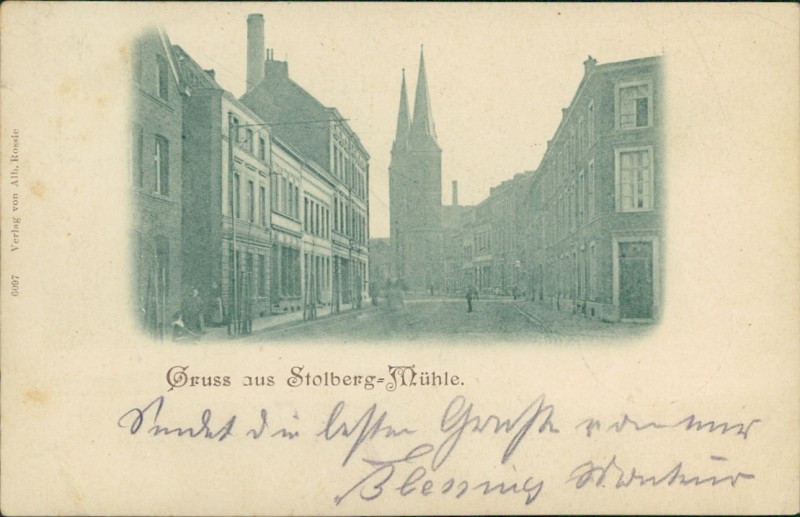 6097 Verlag von Alb. Rossie
Gruss aus Stolberg-Mühle.
Sendet die besten Grüße von mir
Blessing Monteur